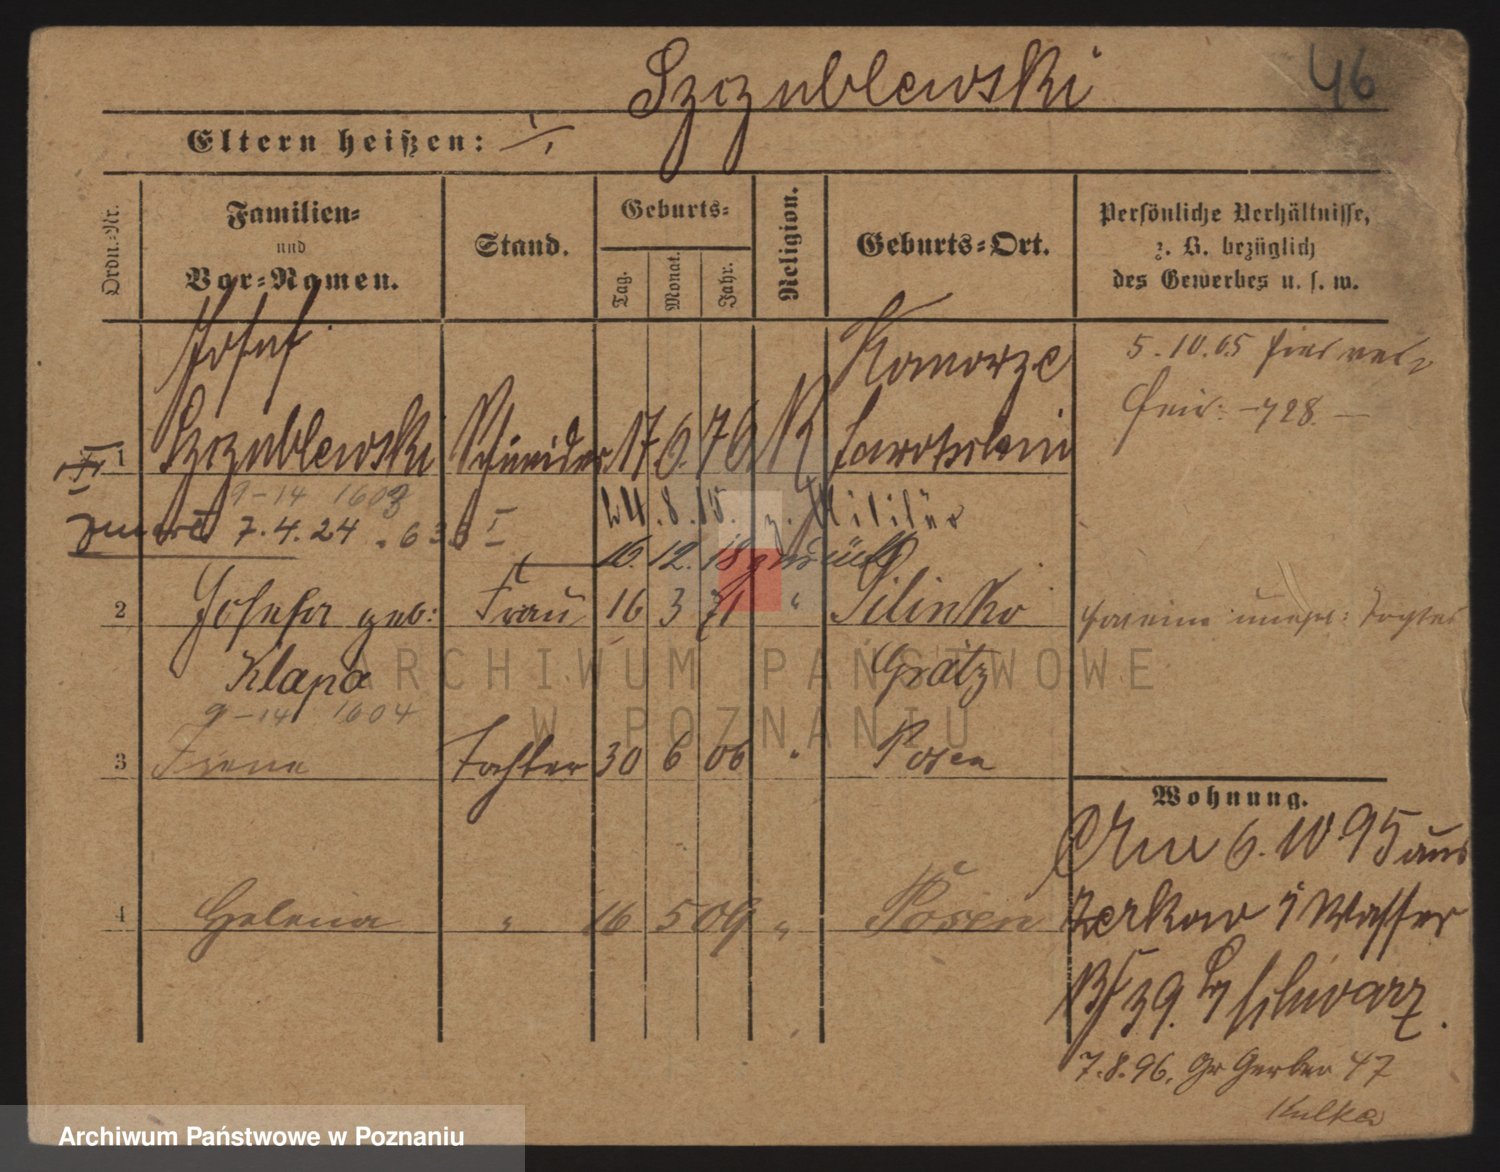 Szczublewski
46
Eltern heißen:
Ordn.-Nr.
Familien-
und
Vor-Namen.
Stand.
Geburts-
Tag.
Monat.
Jahr.
Religion.
Geburts-Ort.
Persönliche Verhältnisse,
z. B. bezüglich
des Gewerbes u. s. w.
1 Josef Szczublewski Schneider 17 6. 76 K Komorze
Jarotschin
5.10.05
728
9-14 1603
7.4.24
I
8.15. z. Militär
16.12.18 zurück
2 Josefa geb: Frau 16 3 71 " Pilinko
Klapa Grätz
9-14 1604
3 Irene Tochter 30 6 06 " Posen
4 Helena " 16 5 09 " Posen
Wohnung.
Am 6.10 95 aus
Zerkow i Wasser
39. Schwarz.
7.8.96. Gr Gerber 47
Kulka
ARCHIWUM PAŃSTWOWE
W POZNANIU
Archiwum Państwowe w Poznaniu